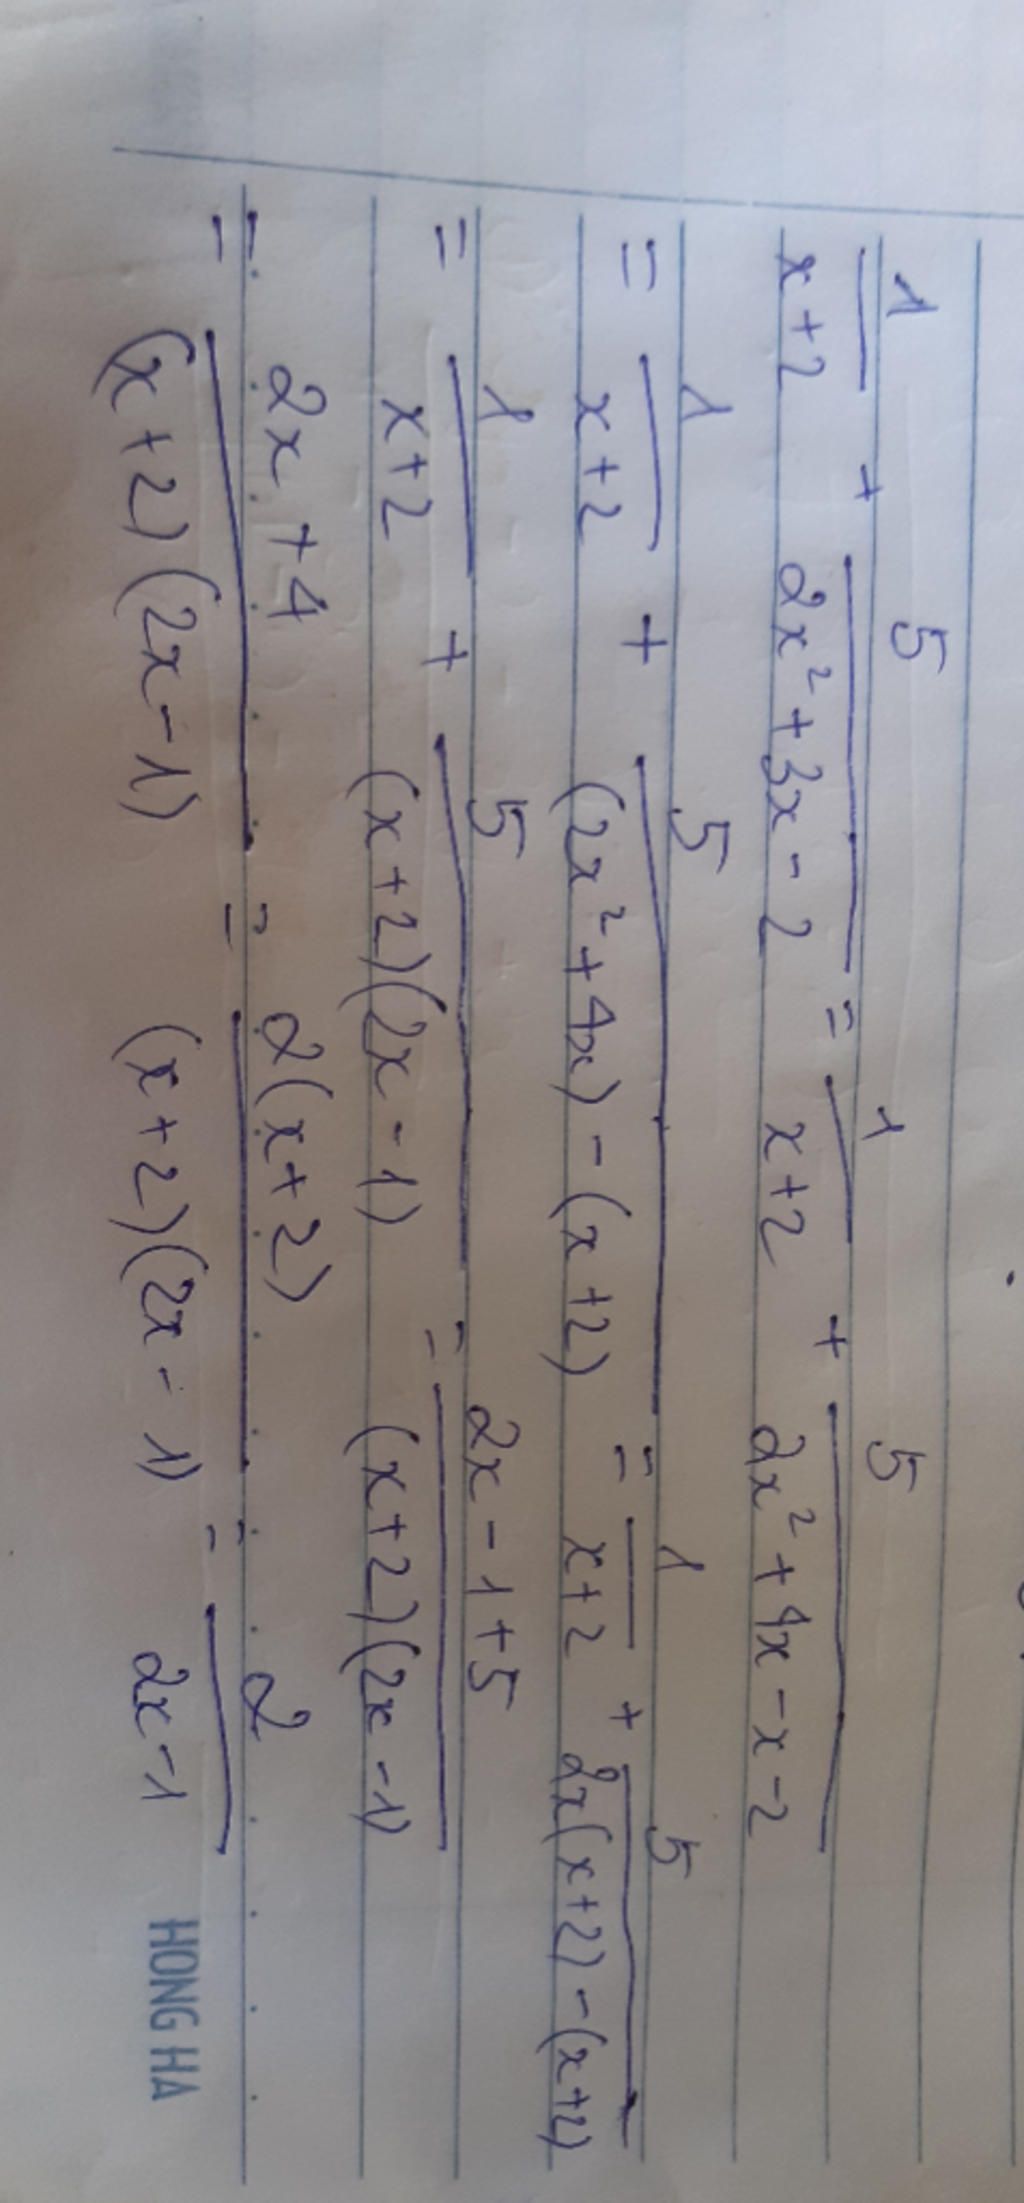 1/(x+2) + 5/(2x²+3x-2) = 1/(x+2) + 5/(2x²+4x-x-2)
= 1/(x+2) + 5/((2x²+4x)-(x+2)) = 1/(x+2) + 5/(2x(x+2)-(x+2))
= 1/(x+2) + 5/((x+2)(2x-1)) = (2x-1+5)/((x+2)(2x-1))
= (2x+4)/((x+2)(2x-1)) = 2(x+2)/((x+2)(2x-1)) = 2/(2x-1)
HONG HA